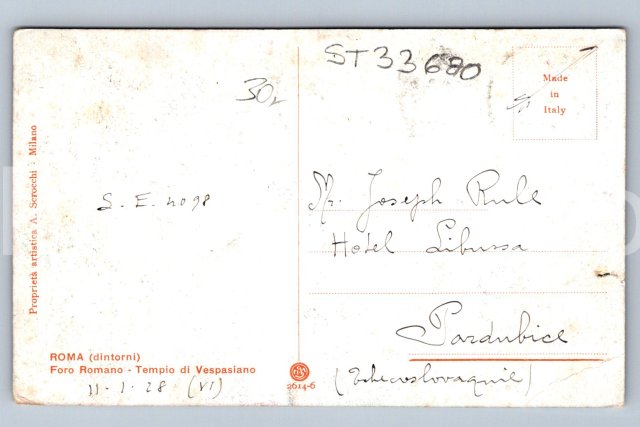 ST33680
30
Made
in
Italy
Proprietà artistica A. Scrocchi - Milano
S. E. 4098
Mr. Joseph Rule
Hotel Libussa
Pardubice
(Tchecoslovaquie)
ROMA (dintorni)
Foro Romano - Tempio di Vespasiano
11-1-28 (VI)
2614-6